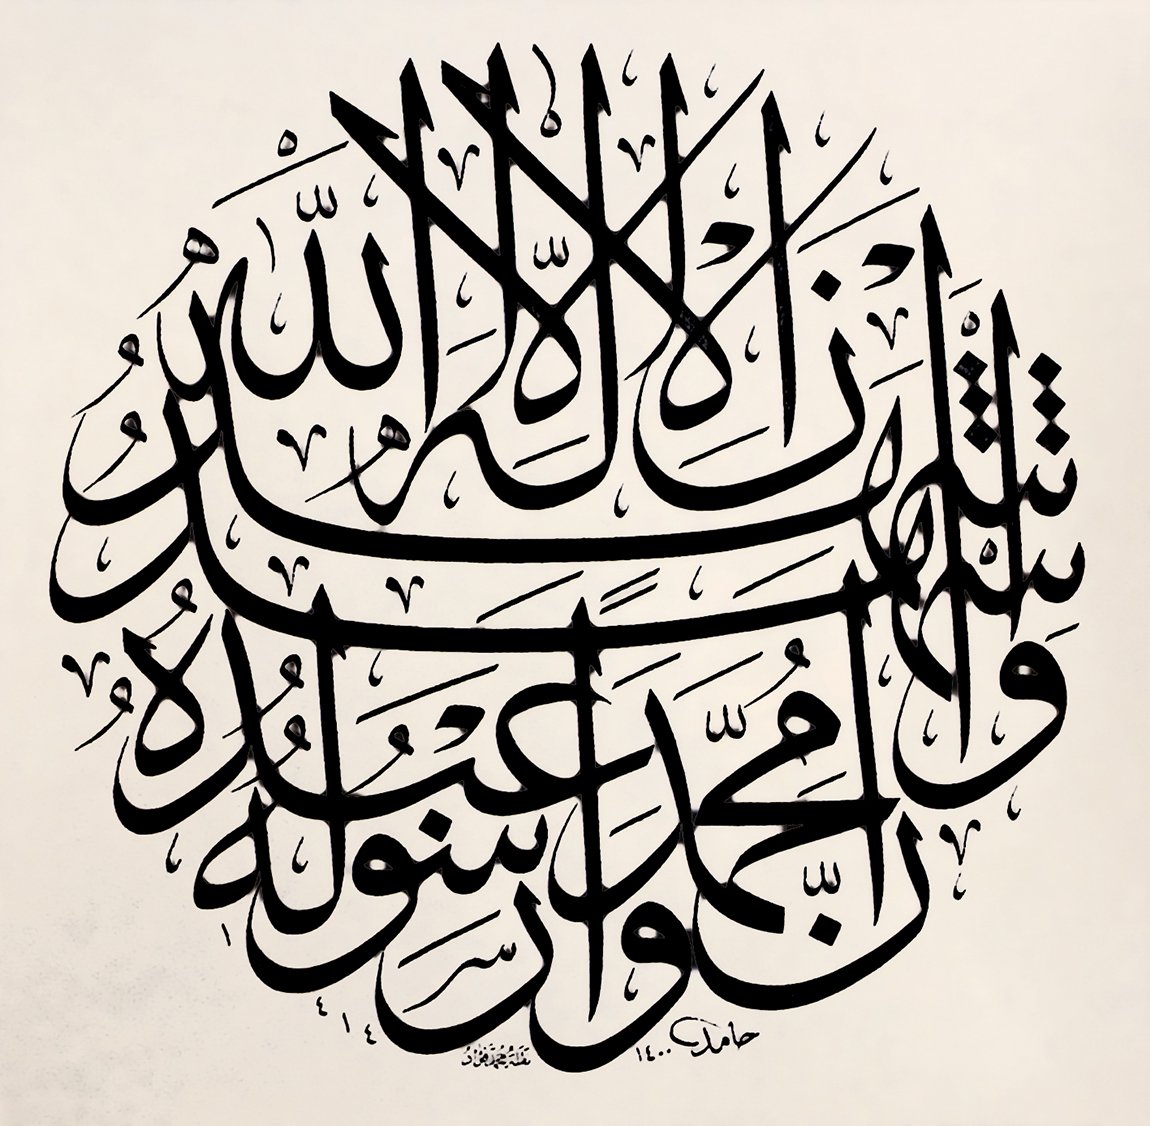 أَشْهَدُ أَنْ لَا إِلٰهَ إِلَّا اللّٰهُ
وَأَشْهَدُ أَنَّ مُحَمَّدًا عَبْدُهُ وَرَسُولُهُ
حامد ١٤٠٠
نقله محمد فؤاد
١٤١٤